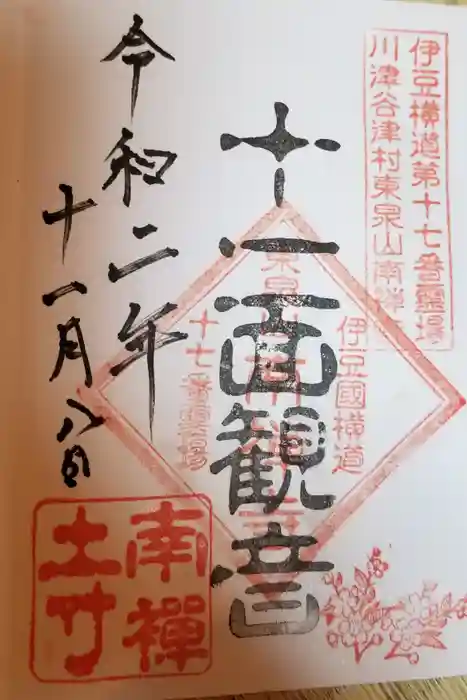 伊豆横道第十七番霊場
川津谷津村東泉山南禅
十一面観音
伊豆國横道
東泉山南禅寺
十七番霊場
令和二年
十一月八日
南禪